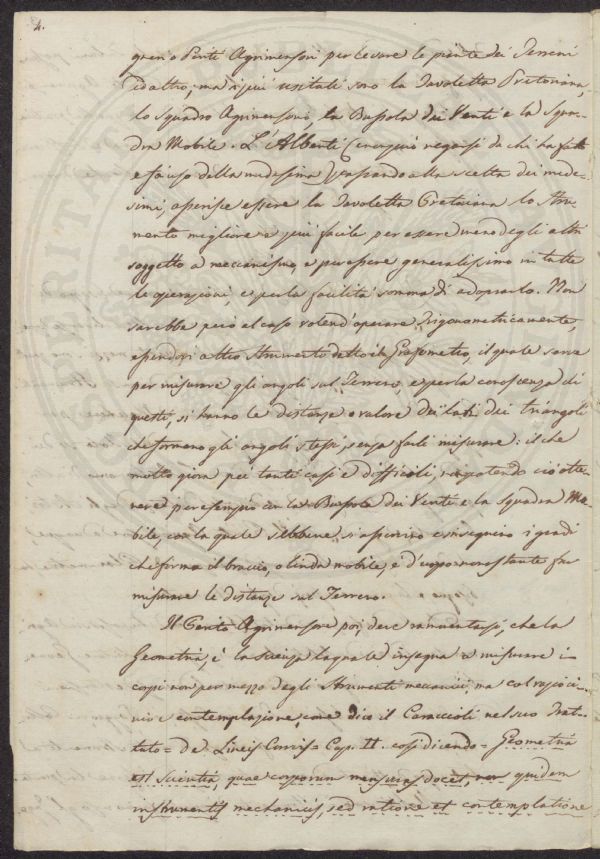 4.
gneri o Periti Agrimensori per levare le piante dei Terreni
ed altro; ma i più usitati sono la Tavoletta Pretoriana,
lo Squadro Agrimensorio, la Bussola dei Venti e la Squa-
dra Mobile. L'Alberti (
e fà uso della medesima) passando alla scelta dei mede-
simi, asserisce essere la Tavoletta Pretoriana lo Stru-
mento migliore e più facile per essere meno degli altri
soggetto a meccanismo, e per essere generalissimo in tutte
le operazioni, e per la facilità somma di adoprarlo. Non
sarebbe però al caso volend'operare Trigonometricamente,
essendovi altro Strumento detto il Grafometro, il quale serve
per misurare gli angoli sul Terreno, e per la conoscenza di
questi, si hanno le distanze o valore dei lati dei triangoli
che formano gli angoli stessi, senza farli misurare: il che
molto giova pei tanti casi e difficili, non potendo ciò otte-
nere per esempio con la Bussola dei Venti e la Squadra Mo-
bile, con la quale sebbene si
che firma il braccio, o linda mobile, è d'uopo nonostante far
misurare le distanze sul Terreno.
Il Perito Agrimensore poi, deve rammentarsi, che la
Geometria, è la scienza la quale insegna a misurare i
corpi non per mezzo degli Strumenti meccanici, ma col raziocì-
nio e contemplazione, come dice il Caraccioli nel suo Trat-
tato = De Lineis Curvis = Cap. II. così dicendo = Geometria
est scientia, quae corporum mensuras docet, non quidem
instrumentis mechanicis, sed ratione et contemplatione